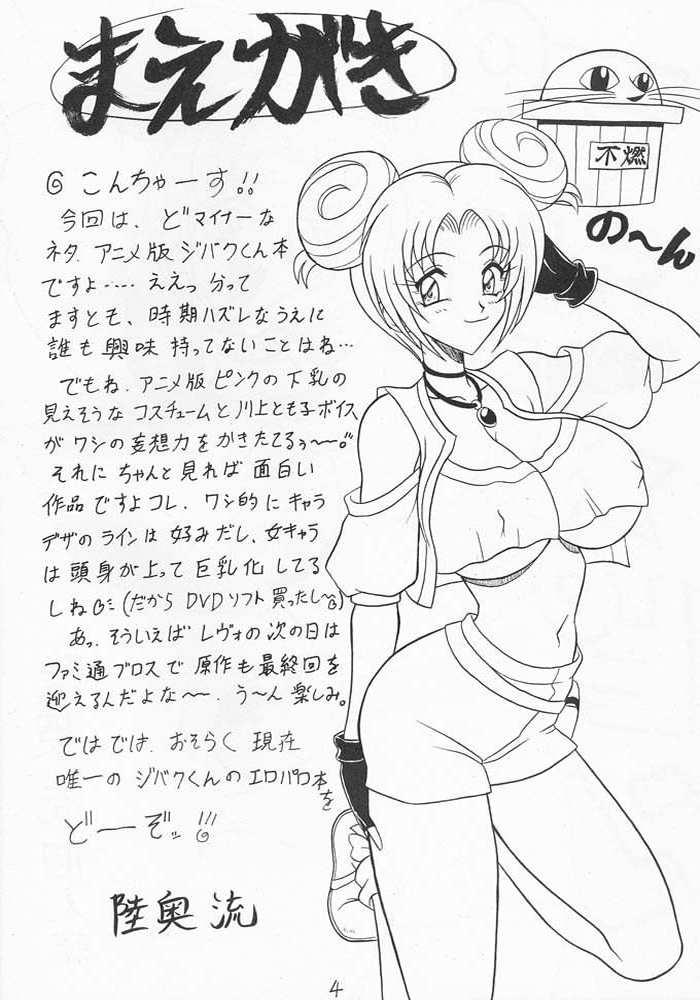 まえがき
こんちゃーす!!
今回は、どマイナーな
ネタ、アニメ版ジバクくん本
ですよ‥‥ええっ分って
ますとも、時期ハズレなうえに
誰も興味持ってないことはね…
でもね、アニメ版ピンクの下乳の
見えそうなコスチュームと川上とも子ボイス
がワシの妄想力をかきたてるぅ〜〜。
それにちゃんと見れば面白い
作品ですよコレ、ワシ的にキャラ
デザのラインは好みだし、女キャラ
は頭身が上って巨乳化してる
しね (だからDVDソフト買ったし〜)
あっ、そういえばレヴォの次の日は
ファミ通ブロスで原作も最終回を
迎えるんだよな〜〜、う〜ん楽しみ。
ではでは、おそらく現在
唯一のジバクくんのエロパロ本を
どーぞッ!!!
陸奥流
不燃
の〜ん
4